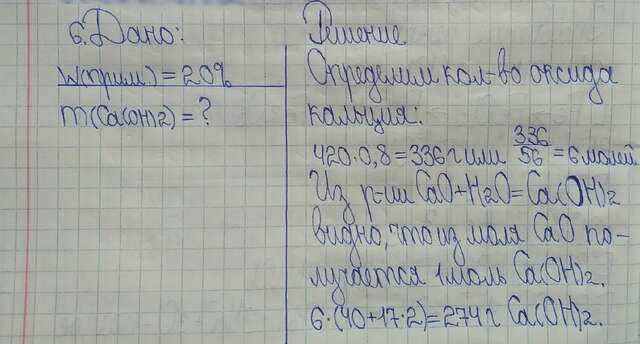 6. Дано:
W(прим) = 20%
m(Ca(OH)2) = ?
Решение
Определим кол-во оксида
кальция:
420·0,8=336 г или 336/56 = 6 молей
Из р-ии CaO+H2O=Ca(OH)2
видно, что из моля CaO по-
лучается 1 моль Ca(OH)2.
6·(40+17·2)=274 г Ca(OH)2.